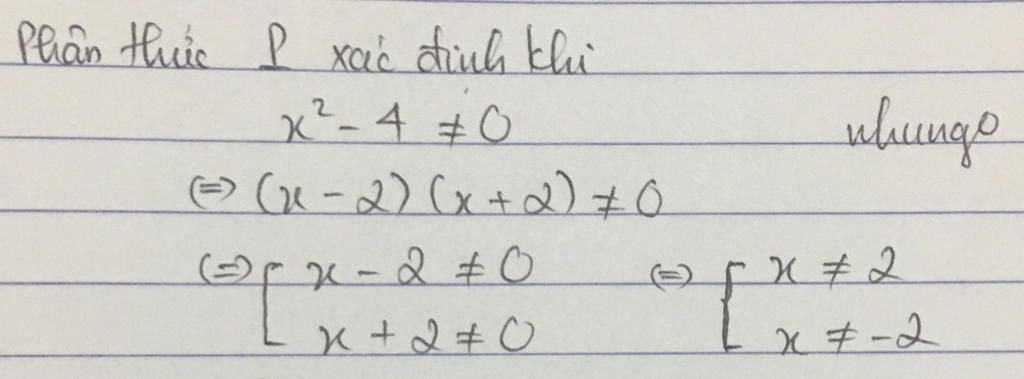 Phân thức P xác định khi
x² - 4 ≠ 0
nhungo
⇔ (x - 2) (x + 2) ≠ 0
⇔ [ x - 2 ≠ 0 ⇔ [ x ≠ 2
x + 2 ≠ 0 x ≠ -2